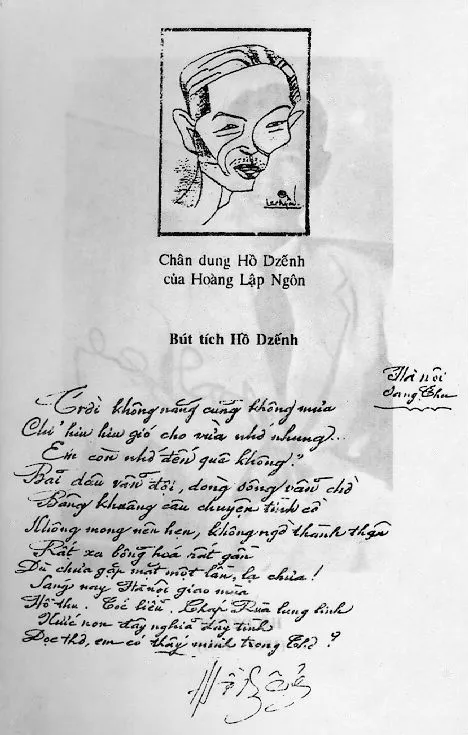 Chân dung Hồ Dzếnh
của Hoàng Lập Ngôn
Bút tích Hồ Dzếnh
Hà nội
Sang Thu
Trời không nắng cũng không mưa
Chỉ hiu hiu gió cho vừa nhớ nhung...
Em còn nhớ đến quê không?
Bãi dâu vẫn đợi, dòng sông vẫn chờ
Bâng khuâng câu chuyện tình cờ
Không mong nên hẹn, không ngờ thành thân
Rất xa bỗng hoá rất gần
Dù chưa gặp mặt một lần, lạ chưa!
Sáng nay Hà nội giao mùa
Hồ thu. Tóc liễu. Tháp Rùa lung linh
Nước non đầy nghĩa đầy tình
Đọc thơ, em có thấy mình trong Thơ?